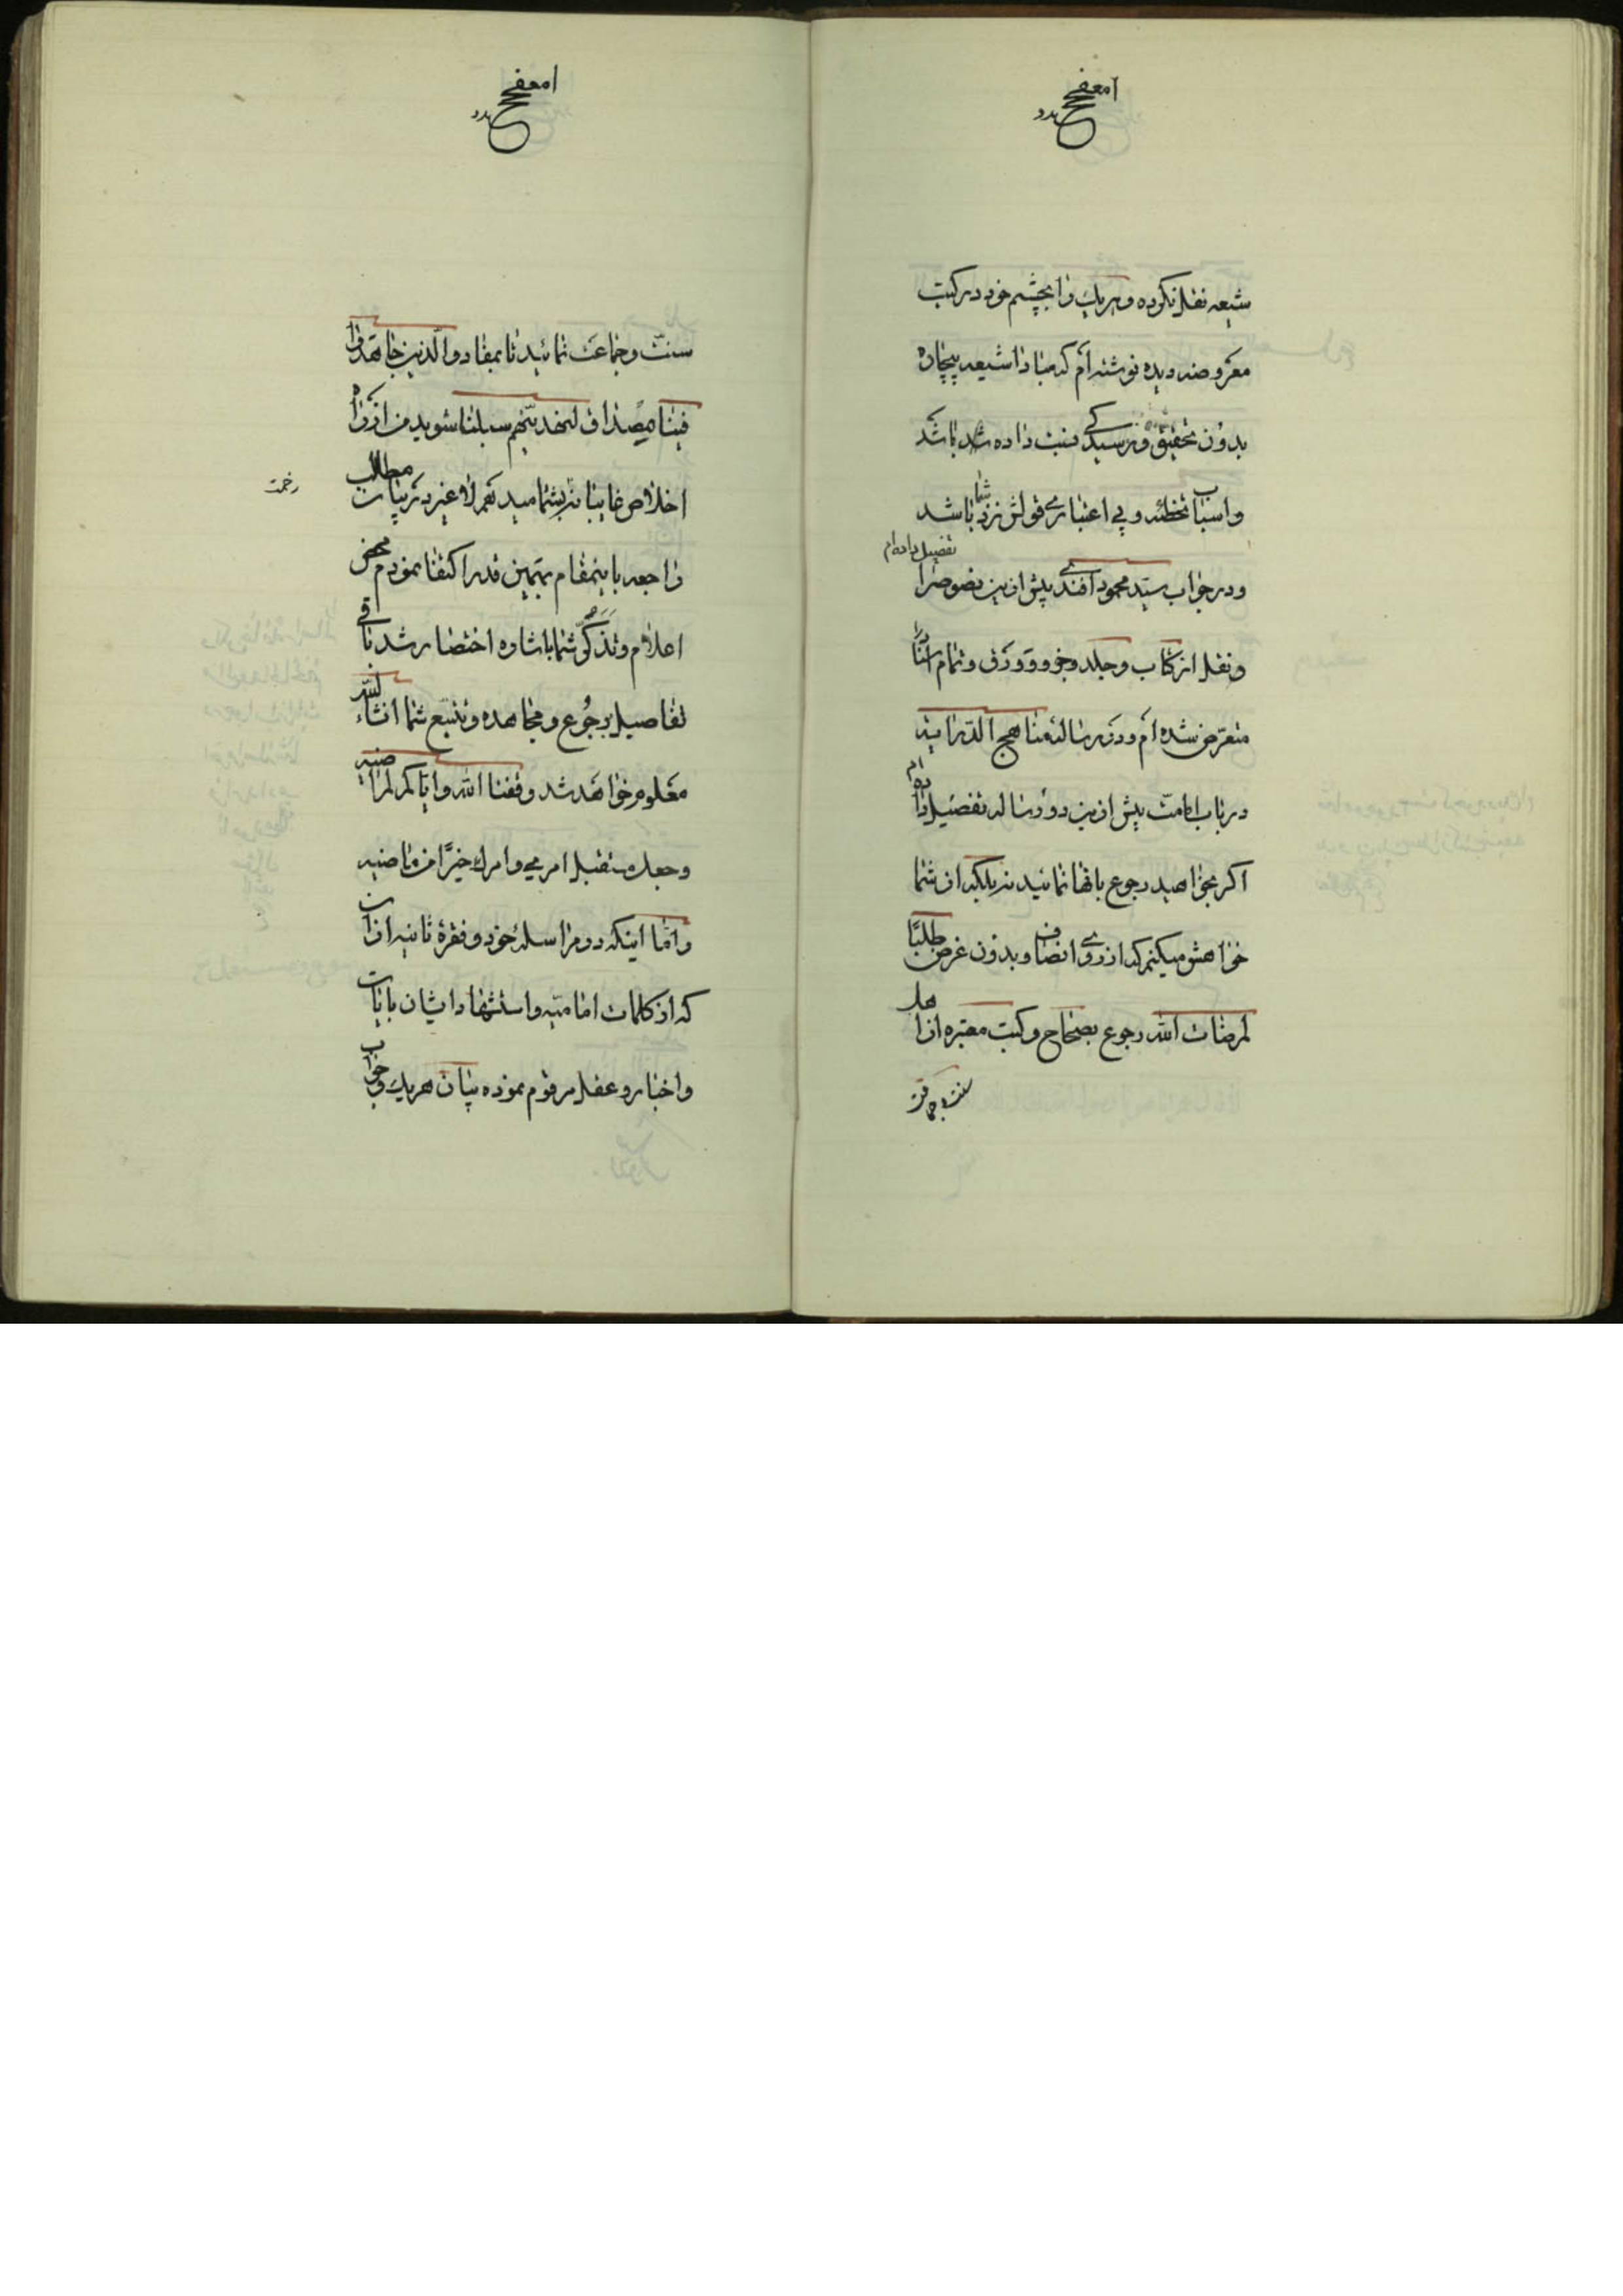 شیعه نقل نکرده و هریک را بچشم خود در کتب
معروضه دیده نوشته‌ام که مبادا شیعه بیچاره
بدون تحقیق و نرسیدگی نسبت داده شده باشد
و اسباب تخطئه و بی اعتباری قولش نزد شما باشد
و در جواب سید محمود افندی پیش ازین نصوص را تفصیل داده‌ام
و نقل از کتاب و جلد و جزو و ورق و تمام آنها را
متعرض شده‌ام و در رساله مناهج الدرایة
در باب امامت پیش ازین دو رساله تفصیل داده‌ام
اگر بخواهید رجوع بانها نمائید نه بلکه از شما
خواهش میکنم که از روی انصاف و بدون غرض طلبًا
لمرضات الله رجوع بصحاح و کتب معتبره از اهل
سنت و جماعت
سنت و جماعت نمائید تا بمفاد والذین جاهدوا
فینا مصداق لنهدینهم سبلنا شوید من از راه
اخلاص غایبانه بشما میدهم لاغیر در بیان مطالب
زحمت
راجعه باینمقام بهمین قدر اکتفا نمودم محض
اعلام و تذکر شما باشاره اختصار شد باقی
تفاصیل برجوع و مجاهده و تتبع شما انشاء الله
معلوم خواهد شد وفقنا الله وایاکم لمراضیه
و جعل مستقبل امری وامرك خیرًا من ماضیه
و اما اینکه در مراسله خود و فقره ثانیه از ان
که از کلمات امامیه و استشهاد ایشان بایات
و اخبار و عقل مرقوم نموده بیان هریک و جواب